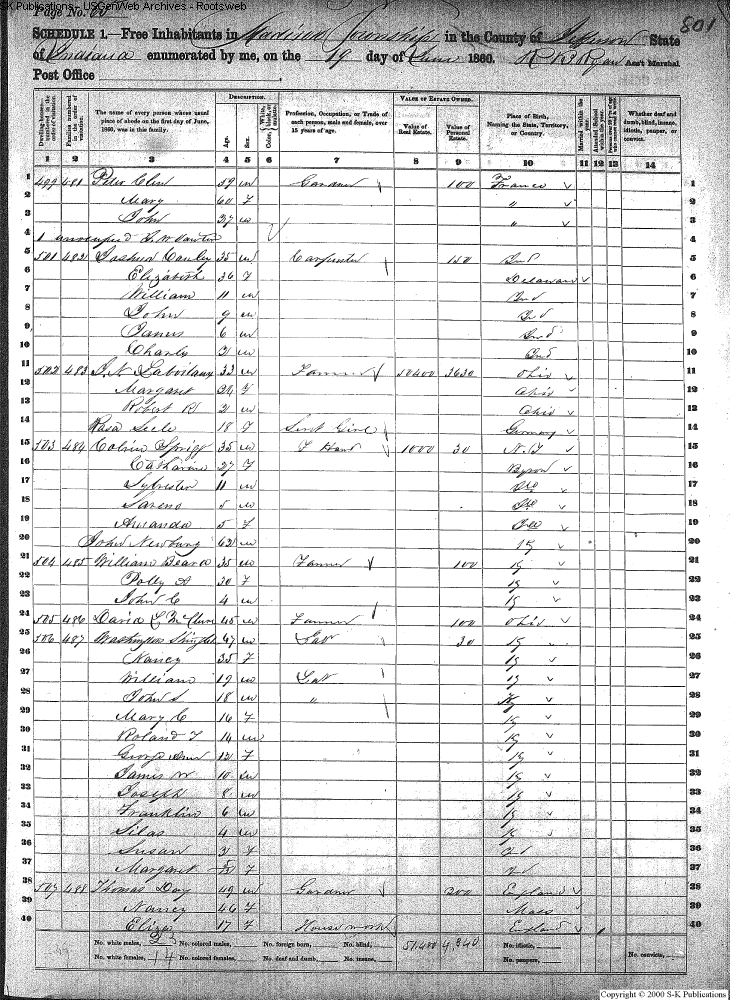 SK Publications - USGenWeb Archives - Rootsweb
Page No. 60
801
SCHEDULE 1.—Free Inhabitants in Madison Township in the County of Jefferson State
of Indiana enumerated by me, on the 19 day of June 1860. R B Ryan Ass't Marshal
Post Office
DESCRIPTION. VALUE OF ESTATE OWNED.
Dwelling-houses—numbered in the order of visitation. Families numbered in the order of visitation. The name of every person whose usual place of abode on the first day of June, 1860, was in this family. Age. Sex. Color, White, black, or mulatto. Profession, Occupation, or Trade of each person, male and female, over 15 years of age. Value of Real Estate. Value of Personal Estate. Place of Birth, Naming the State, Territory, or Country. Married within the year. Attended School within the year. Whether deaf and dumb, blind, insane, idiotic, pauper, or convict.
1 2 3 4 5 6 7 8 9 10 11 12 13 14
1 499 481 Peter 59 m Gardner 100 France 1
2 Mary 60 f " 2
3 John 27 m " 3
4 1 unoccupied 4
5 501 482 Joshua 35 m Carpenter 150 Ind 5
6 Elizabeth 36 f Delaware 6
7 William 11 m Ind 7
8 John 9 m Ind 8
9 James 6 m Ind 9
10 Charly 2 m Ind 10
11 502 483 33 m Farmer 50400 3630 Ohio 11
12 Margaret 24 f Ohio 12
13 Robert R 2 m Ohio 13
14 Rosa Seele 18 f Servt Girl Germany 14
15 503 484 Sprigg 35 m F Hand 1000 30 N.J 15
16 Catharine 27 f 16
17 Sylvester 11 m 17
18 5 m 18
19 Amanda 5 f 19
20 John Newburg 62 m Ky 20
21 504 485 William 35 m Farmer 100 Ky 21
22 Polly A 30 f Ky 22
23 John C 4 m Ky 23
24 505 486 David McClure 45 m Farmer 100 Ohio 24
25 506 487 Washington 47 m Lab 30 Ky 25
26 Nancy 35 f Ky 26
27 William 19 m Lab Ky 27
28 John S 18 m " Ky 28
29 Mary C 16 f Ky 29
30 Roland T 14 m Ky 30
31 George Ann 12 f Ky 31
32 James W 10 m Ky 32
33 Joseph 8 m Ky 33
34 Franklin 6 m Ky 34
35 Silas 4 m K 35
36 Susan 3 f Ind 36
37 Margaret f Ind 37
38 507 488 Thomas Day 49 m Gardner 200 England 38
39 Nancy 46 f Mass 39
40 Eliza 17 f House work England 40
No. white males, 23 No. colored males, No. foreign born, No. blind, 51,400 4,340 No. idiotic, No. convicts,
No. white females, 14 No. colored females, No. deaf and dumb, No. insane, No. paupers,
Copyright © 2000 S-K Publications